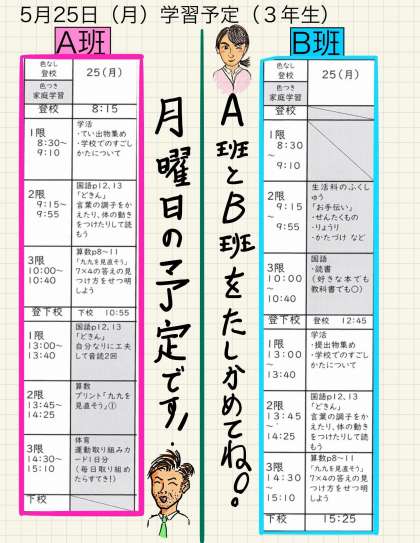 5月25日（月）学習予定（３年生）
A班
色なし
登校
25(月)
色つき
家庭学習
登校
8:15
1限
8:30～
9:10
学活
・てい出物集め
・学校でのすごし
かたについて
2限
9:15～
9:55
国語p12,13
「どきん」
言葉の調子をかえたり、体の動き
をつけたりして読
もう
3限
10:00～
10:40
算数p8～11
「九九を見直そう」
7×4の答えの見
つけ方をせつ明
しよう
登下校
下校 10:55
1限
13:00～
13:40
国語p12,13
「どきん」
自分なりに工夫
して音読2回
2限
13:45～
14:25
算数
プリント「九九を
見直そう」①
3限
14:30～
15:10
体育
運動取り組みカ
ード1日分
（毎日取り組め
たらすてき！）
下校
月曜日の予定です!．
A班とB班をたしかめてね。
B班
色なし
登校
25(月)
色つき
家庭学習
登校
1限
8:30
～
9:10
2限
9:15
～
9:55
生活科のふくし
ゅう
「お手伝い」
・せんたくもの
・りょうり
・かたづけ など
3限
10:00
～
10:40
国語
・読書
（好きな本でも
教科書でも○）
登下校
登校 12:45
1限
13:00
～
13:40
学活
・提出物集め
・学校でのすごし
かたについて
2限
13:45
～
14:25
国語p12,13
「どきん」
言葉の調子をか
えたり、体の動き
をつけたりして読
もう
3限
14:30
～
15:10
算数p8～11
「九九を見直そう」
7×4の答えの見
つけ方をせつ明
しよう
下校
15:25